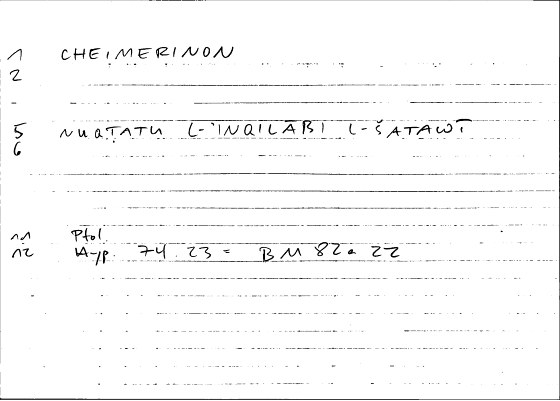 1 CHEIMERINON
2
-
5 NUQṬATU L-ʾINQILĀBI L-ŠATAWĪ
6
11 Ptol.
12 A-yp. 74.23 = BM 82a 22